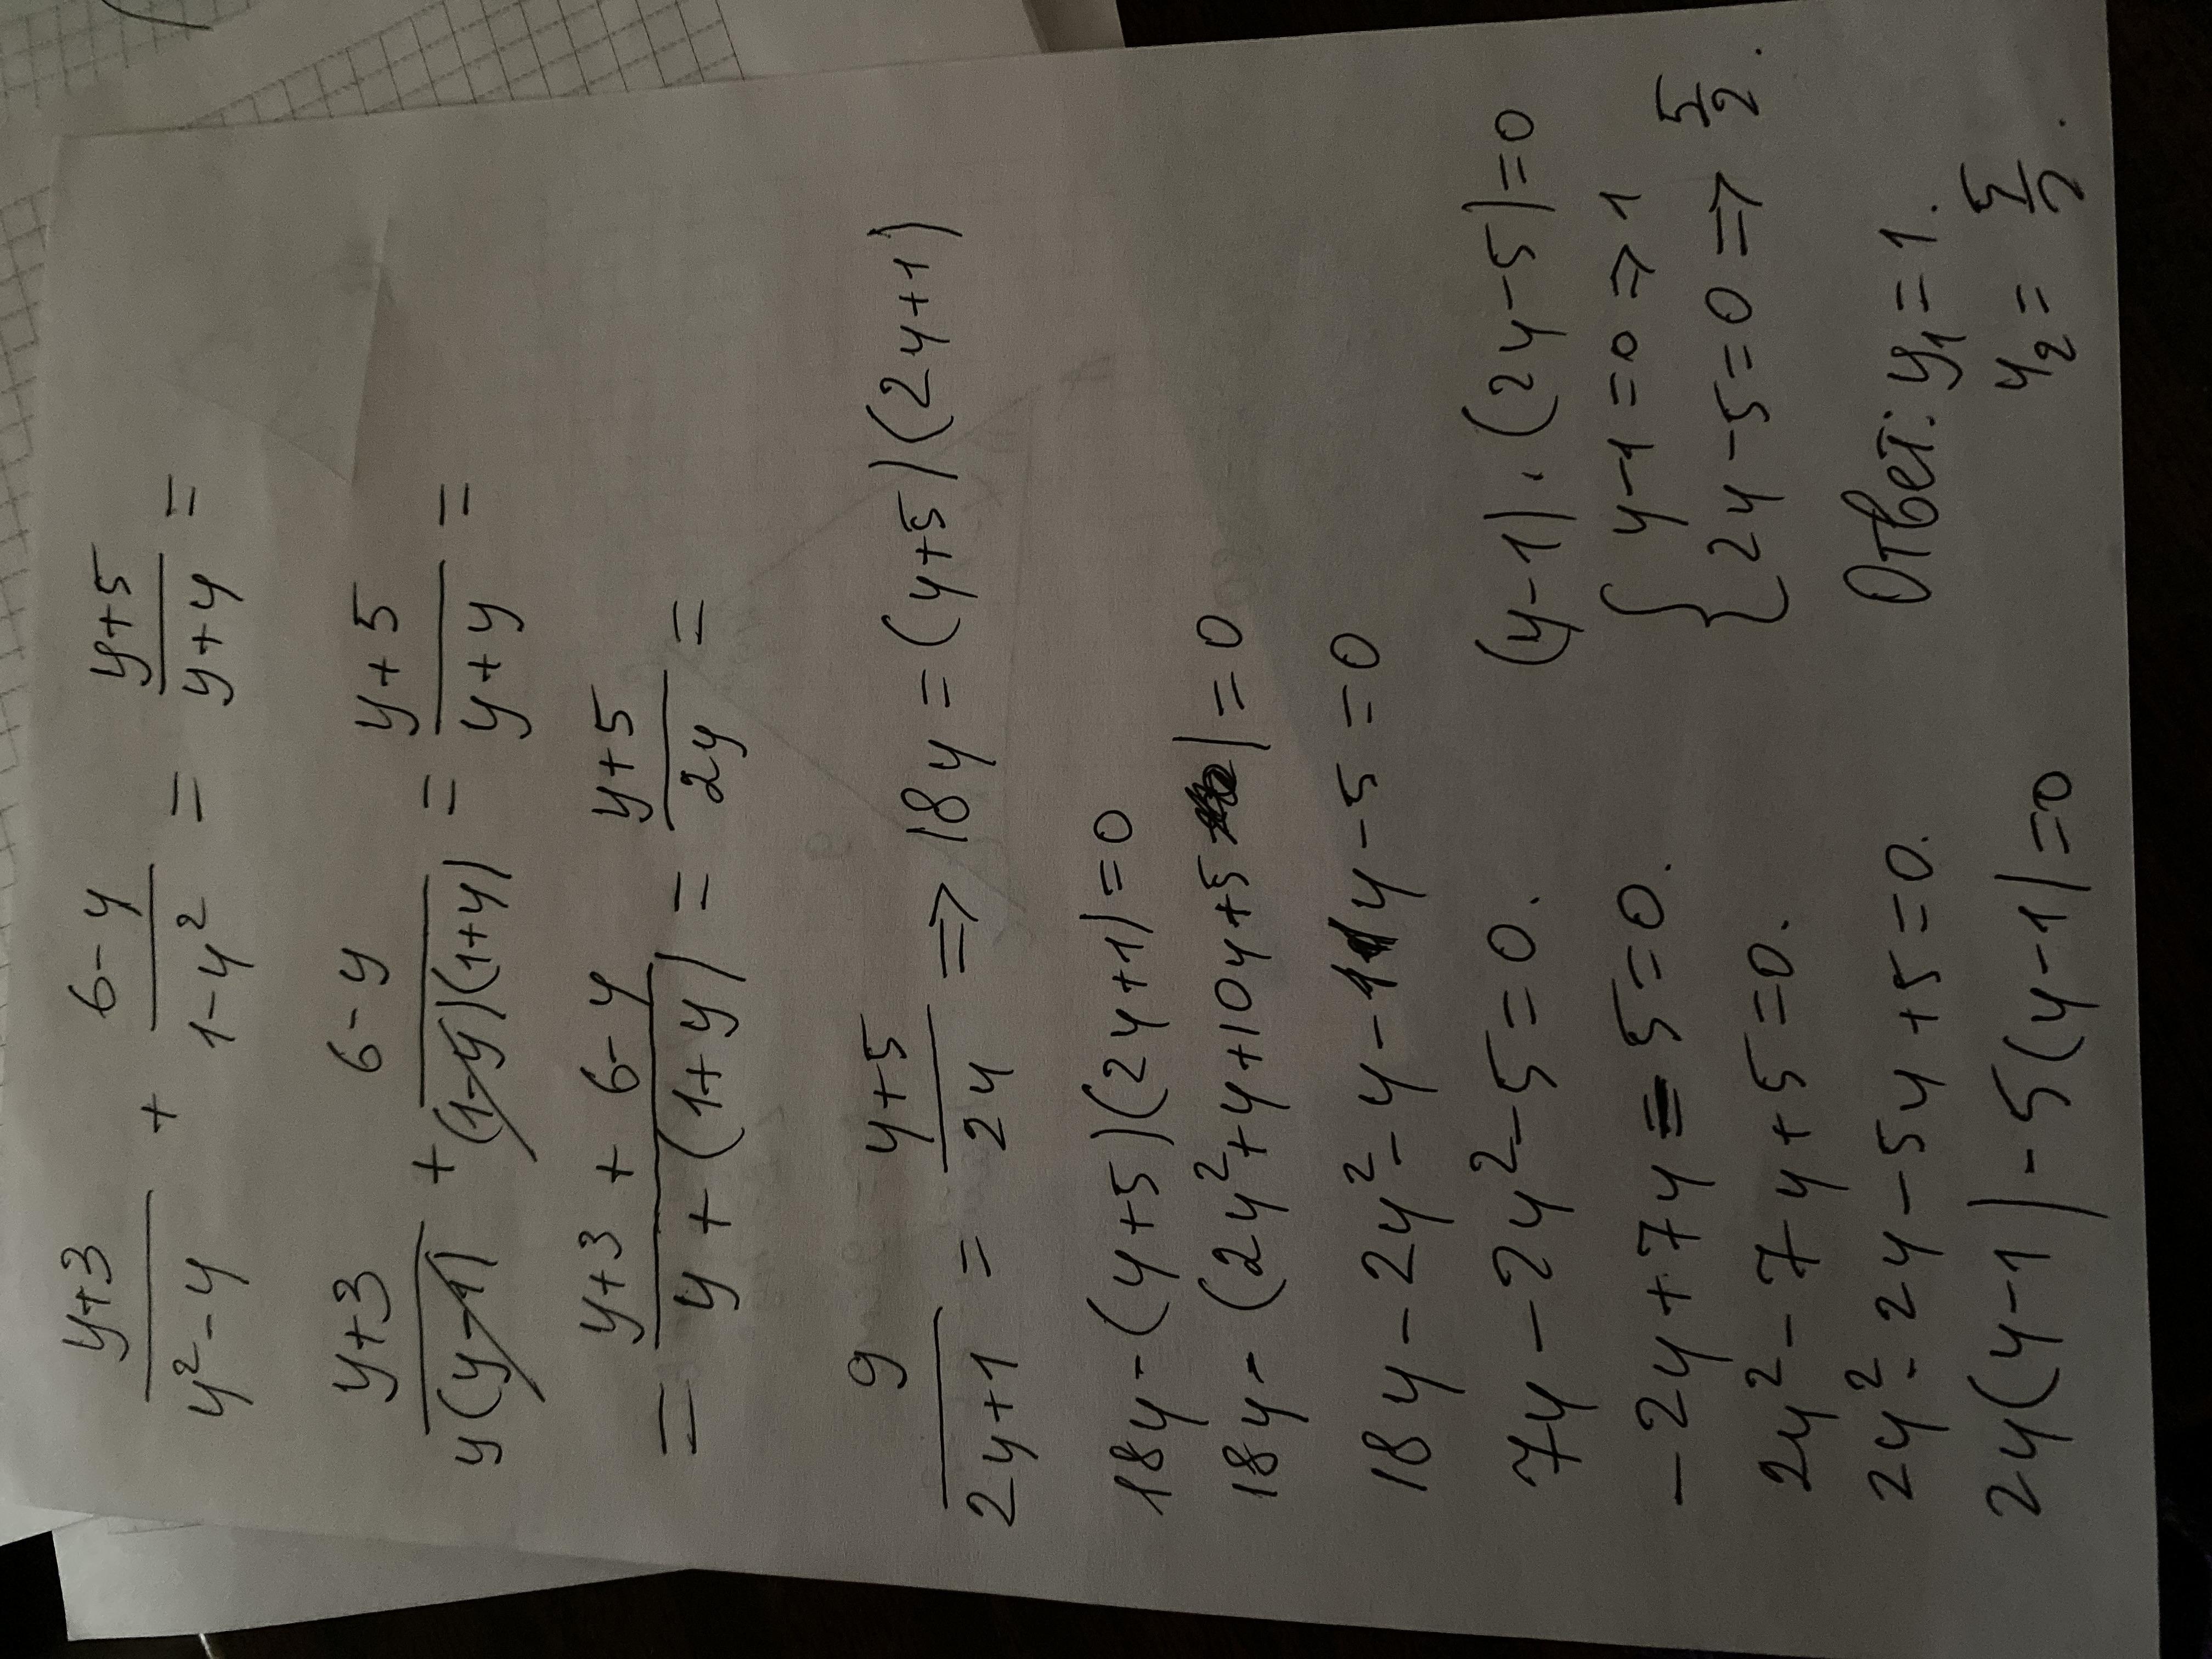 (y+3)/(y²-y) + (6-y)/(1-y²) = (y+5)/(y+y) =
(y+3)/(y(y-1)) + (6-y)/((1-y)(1+y)) = (y+5)/(y+y) =
= (y+3 + 6-y)/(y + (1+y)) = (y+5)/(2y) =
9/(2y+1) = (y+5)/(2y) => 18y = (y+5)(2y+1)
18y-(y+5)(2y+1)=0
18y-(2y²+y+10y+5)=0
18y-2y²-y-11y-5=0
7y-2y²-5=0.
-2y+7y=5=0.
2y²-7y+5=0.
2y²-2y-5y+5=0.
2y(y-1)-5(y-1)=0
(y-1)·(2y-5)=0
{ y-1=0 => 1
2y-5=0 => 5/2.
Ответ: y₁=1.
y₂= 5/2.